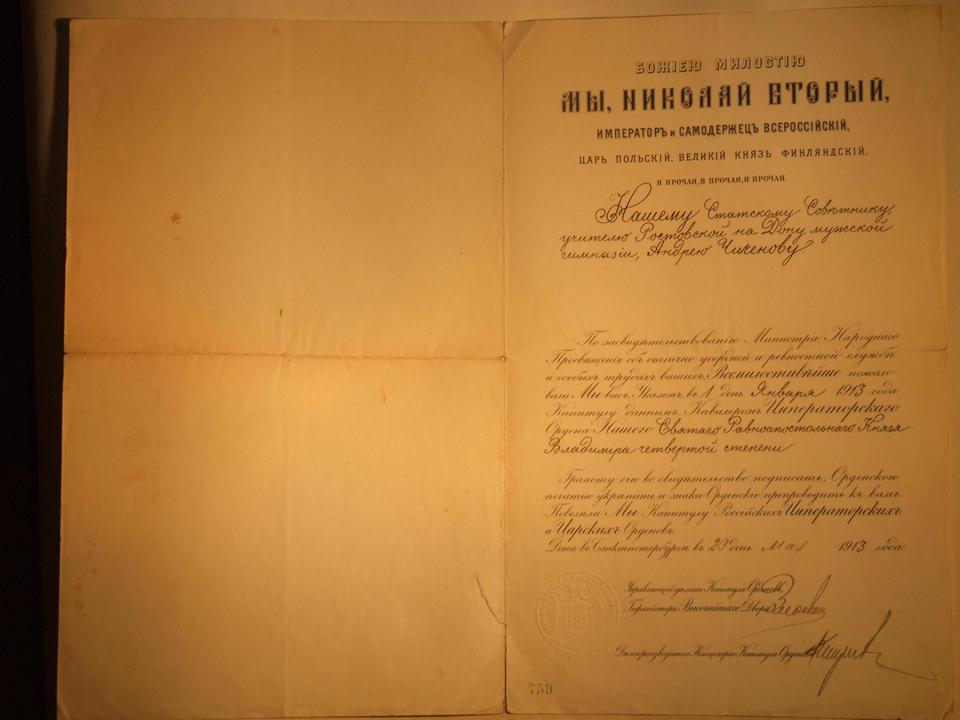 БОЖІЕЮ МИЛОСТІЮ
МЫ, НИКОЛАЙ ВТОРЫЙ,
ИМПЕРАТОРЪ и САМОДЕРЖЕЦЪ ВСЕРОССІЙСКІЙ,
ЦАРЬ ПОЛЬСКІЙ, ВЕЛИКІЙ КНЯЗЬ ФИНЛЯНДСКІЙ,
И ПРОЧАЯ, И ПРОЧАЯ, И ПРОЧАЯ.
Нашему Статскому Совѣтнику,
учителю Ростовской на Дону мужской
гимназіи, Андрею Чиченову.
По засвидѣтельствованію Министра Народнаго
Просвѣщенія объ отлично усердной и ревностной службѣ
и особыхъ трудахъ вашихъ, Всемилостивѣйше пожало-
вали Мы васъ, Указомъ, въ 1 день Января 1913 года
Капитулу даннымъ, Кавалеромъ Императорскаго
Ордена Нашего Святаго Равноапостольнаго Князя
Владимира четвертой степени.
Грамоту сію во свидѣтельство подписать, Орденскою
печатью укрѣпить и знаки Орденскіе препроводить къ вамъ
Повелѣли Мы Капитулу Россійскихъ Императорскихъ
и Царскихъ Орденовъ.
Дана въ Санктпетербургѣ въ 23 день Мая 1913 года
Управляющій дѣлами Капитула Орденовъ,
Гофмейстеръ Высочайшаго Двора
Дѣлопроизводитель Канцеляріи Капитула Орденовъ
759